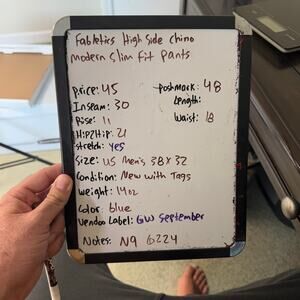 Fabletics High Side Chino
Modern Slim Fit Pants
Price: 45
Poshmark: 48
Inseam: 30
Length:
Rise: 11
Waist: 18
Hip2Hip: 21
Stretch: Yes
Size: US Men's 38 x 32
Condition: New with Tags
Weight: 14oz
Color: Blue
Vendoo Label: GW September
Notes: N9 6224